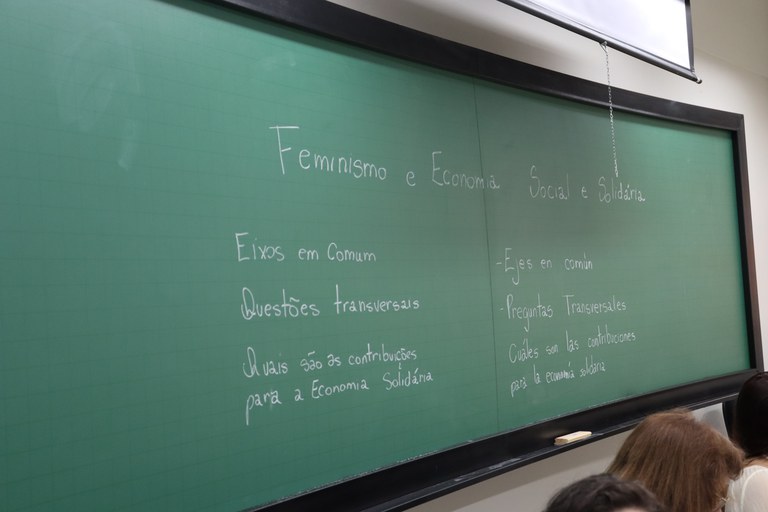 Feminismo e Economia Social e Solidária
Eixos em Comum
Questões transversais
Quais são as contribuições
para a Economia Solidária
- Ejes en común
- Preguntas Transversales
Cuáles son las contribuciones
para la economía solidária